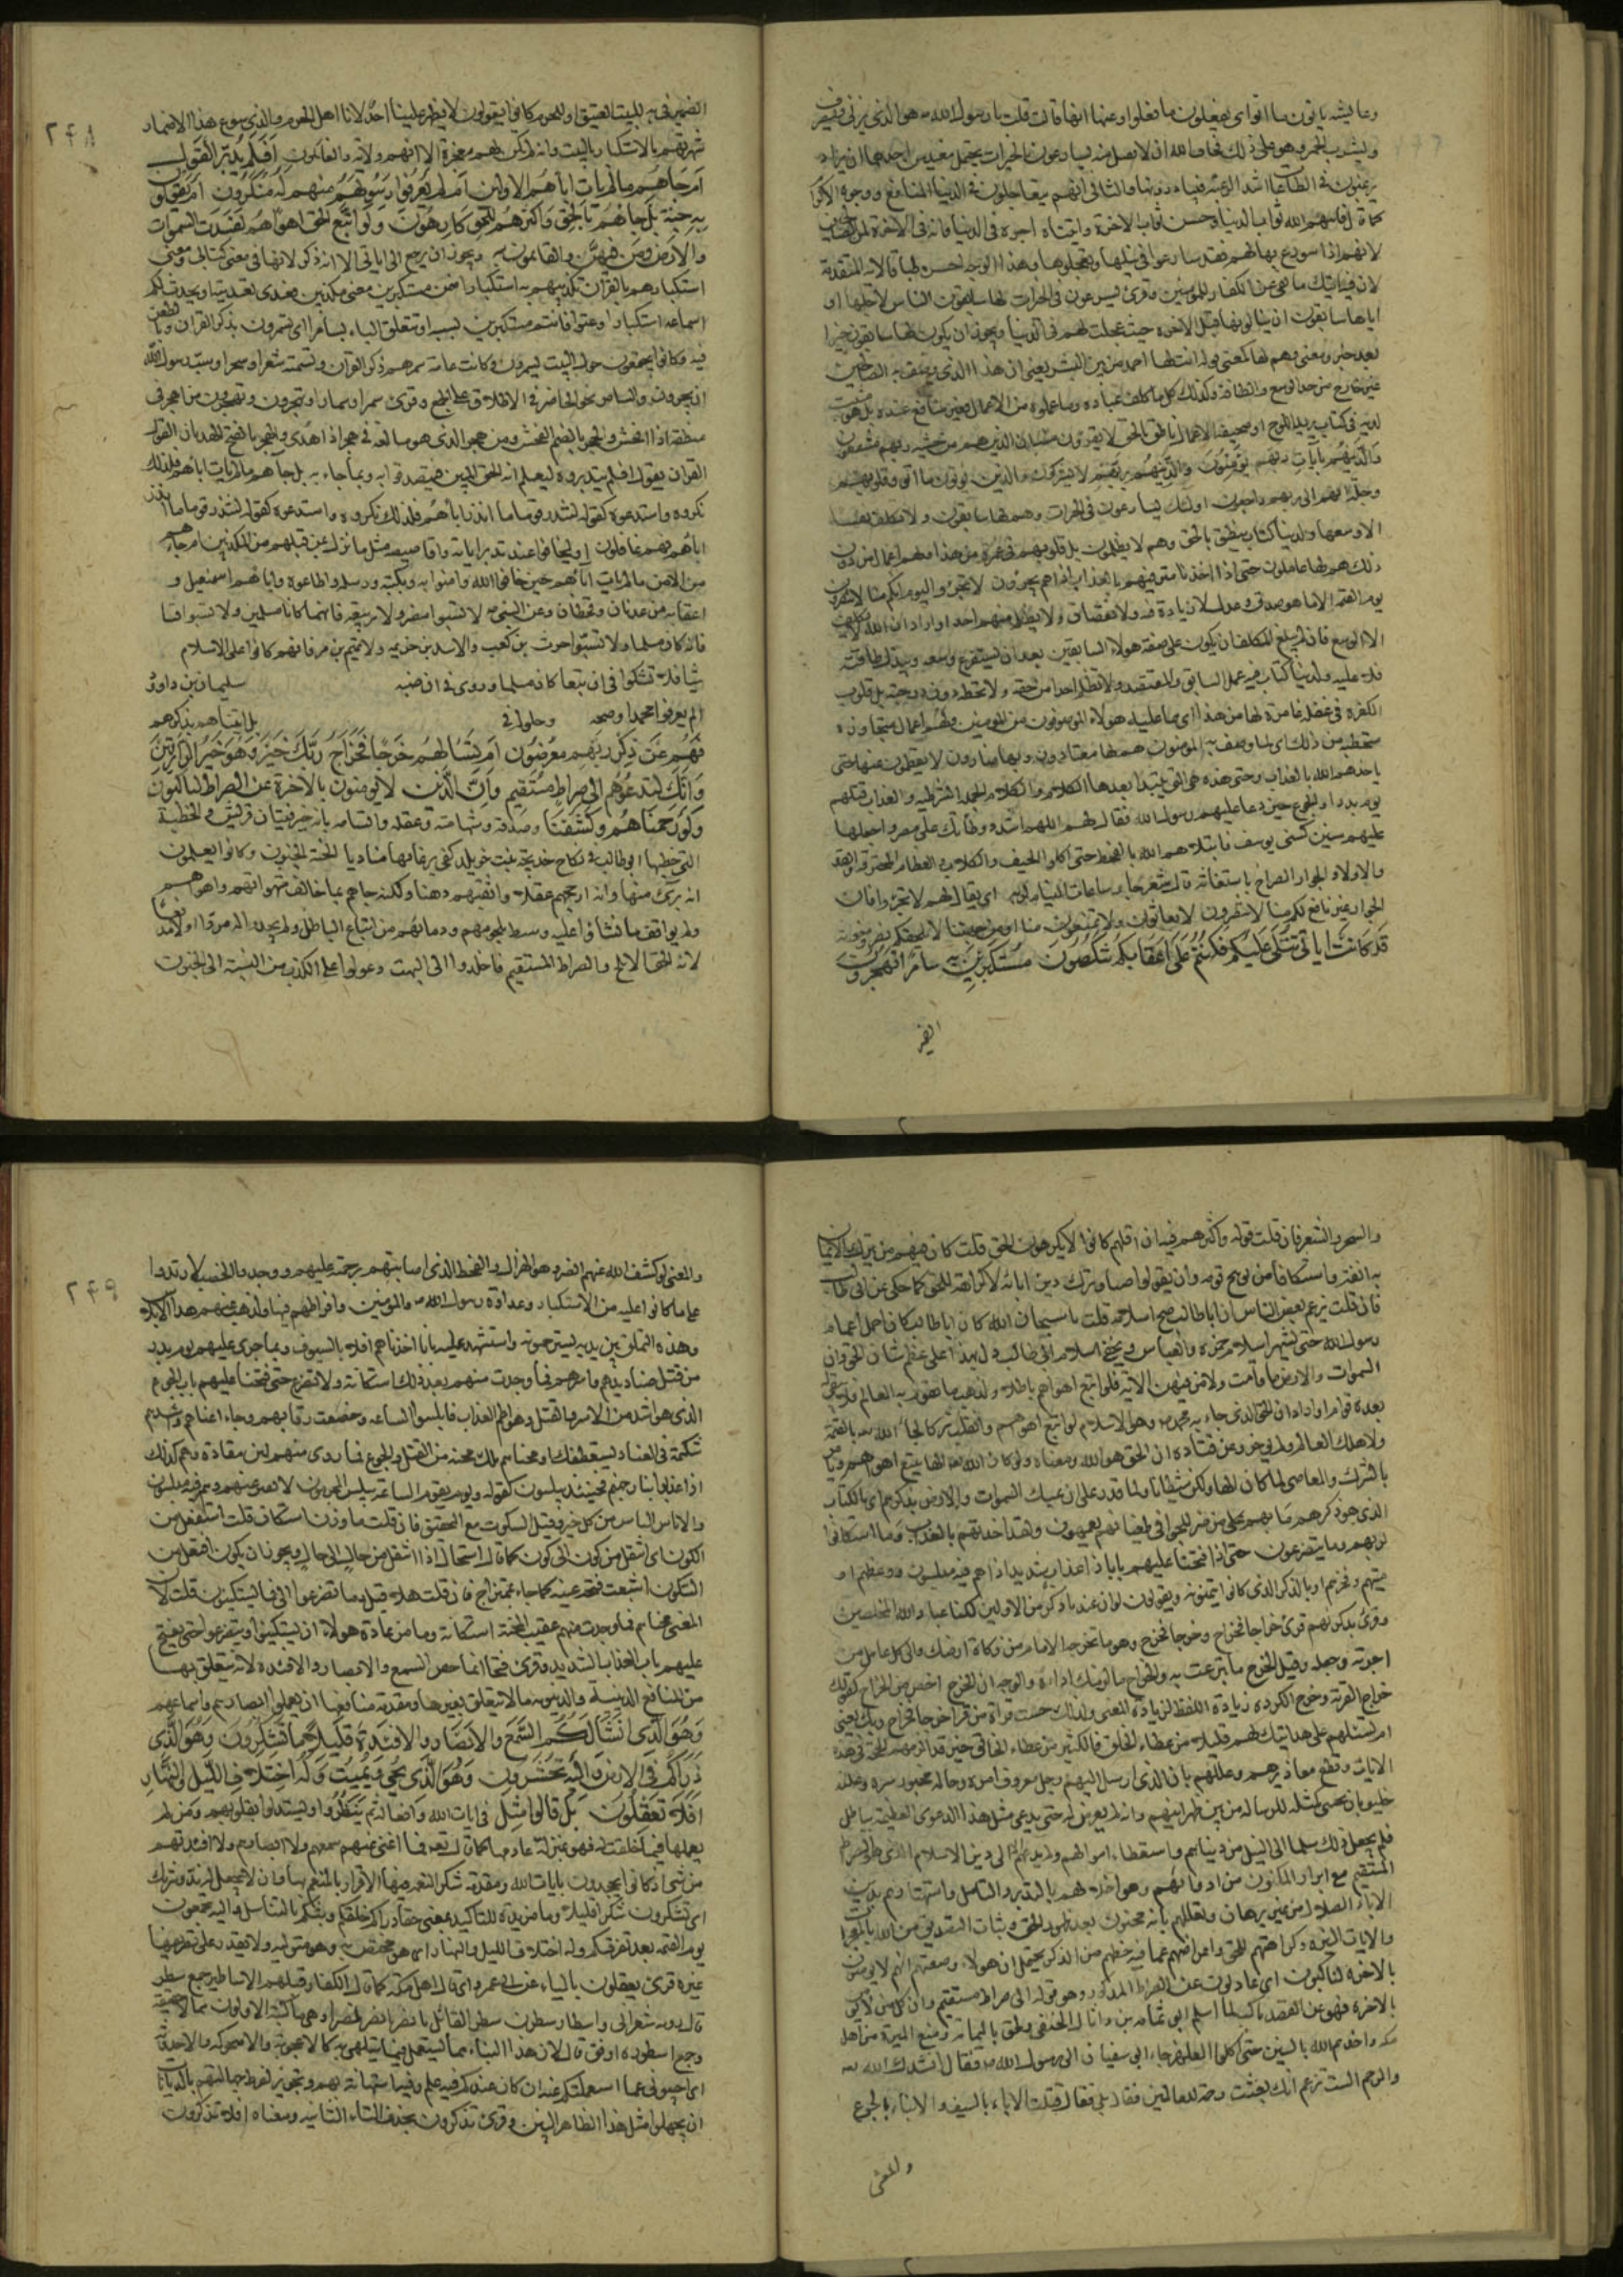 وعايشة ياتون ما اتوا اى يفعلون ما فعلوا وعنها انها قالت قلت يا رسول الله هو الذى يزنى ويسرق
ويشرب الخمر وهو على ذلك يخاف الله ان لا يقبل منه يسارعون فى الخيرات يحتمل معنيين احدهما ان يراد
يرغبون فى الطاعات اشد الرغبة فيبادرونها والثانى انهم يتعاجلون فى الدنيا المنافع ووجوه الاكرام
كما قال فاتيهم الله ثواب الدنيا وحسن ثواب الاخرة واتيناه اجره فى الدنيا وانه فى الاخرة لمن الصالحين
لانهم اذا سورع بها لهم فقد سارعوا فى نيلها وتعجلوها وهذا الوجه احسن طباقا للاية المتقدمة
لان فيه اثبات ما نفى عن الكفار للمؤمنين وقرئ يسرعون فى الخيرات لها سابقون الناس لاجلها او
اياها سابقون اى ينالونها قبل الاخرة حيث عجلت لهم فى الدنيا ويجوز ان يكون لها سابقون خبرا
بعد خبر ومعنى وهم لها كمعنى قوله انت لها احمد من بين البشر يعنى ان هذا الذى وصف به الصالحين
غير خارج من حد الوسع والطاقة وكذلك كل ما كلفه عباده وما عملوه من الاعمال فغير ضائع عنده بل هو مثبت
لديه فى كتاب يريد اللوح او صحيفة الاعمال ناطق بالحق لا يقرؤن منه ان الذين هم من خشية ربهم مشفقون
والذين هم بآيات ربهم يؤمنون والذين هم بربهم لا يشركون والذين يؤتون ما اتوا وقلوبهم
وجلة انهم الى ربهم راجعون اولئك يسارعون فى الخيرات وهم لها سابقون ولا نكلف نفسا
الا وسعها ولدينا كتاب ينطق بالحق وهم لا يظلمون بل قلوبهم فى غمرة من هذا ولهم اعمال من دون
ذلك هم لها عاملون حتى اذا اخذنا مترفيهم بالعذاب اذا هم يجئرون لا تجئروا اليوم انكم منا لا تنصرون
يوم القيمة الا ما هو صدق وعدل لا زيادة فيه ولا نقصان ولا يظلم منهم احد او اراد ان الله لا يكلف
الا الوسع فان لم يبلغ المكلف ان يكون على صفة هولاء السابقين بعد ان يستفرغ وسعه ويبذل طاقته
فلا عليه ولدينا كتاب فيه عمل السابق والمقتصد ولا نظلم احدا من حقه ولا نحطه دون درجته بل قلوب
الكفرة فى غفلة غامرة لها من هذا اى مما عليه هولاء الموصوفون من المؤمنين ولهم اعمال متجاوزة
متخطية من ذلك اى لما وصف به المؤمنون هم لها معتادون وبها ضارون لا يفطمون عنها حتى
ياخذهم الله بالعذاب وحتى هذه هى التى يبتدأ بعدها الكلام والكلام الجملة الشرطية والعذاب قتلهم
يوم بدر او الجوع حين دعا عليهم رسول الله فقال اللهم اشدد وطاتك على مضر واجعلها
عليهم سنين كسنى يوسف فابتلاهم الله بالقحط حتى اكلوا الجيف والكلاب والعظام المحترقة والقد
والاولاد والجوار الصراخ باستغاثة قال جأر ساعات النيام لربه اى يقال لهم لا تجئروا فان
الجوار غير نافع لكم منا لا تنصرون لا تغاثون ولا تمنعون منا او من جهتنا لا يلحقكم نصر ومعونة
قد كانت اياتى تتلى عليكم فكنتم على اعقابكم تنكصون مستكبرين به سامرا تهجرون
الضمير
٢۴٨
الضمير فى به للبيت العتيق او للحرم كانوا يقولون لا يظهر علينا احد لانا اهل الحرم والذى سوغ هذا الاضمار
شهرتهم بالاستكبار بالبيت وانه لم يكن لهم مفخرة الا انهم ولاته والقائمون افلم يدبروا القول
ام جاءهم ما لم يأت اباءهم الاولين ام لم يعرفوا رسولهم فهم له منكرون ام يقولون
به جنة بل جاءهم بالحق واكثرهم للحق كارهون ولو اتبع الحق اهواءهم لفسدت السموات
والارض ومن فيهن والقائمون به ويجوز ان يرجع الى اياتى الا انه ذكر لانها فى معنى كتابى ومعنى
استكبارهم بالقران تكذيبهم به استكبارا ضمن مستكبرين معنى مكذبين فعدى تعديته او يحدث لكم
استماعه استكبارا وعتوا فانتم مستكبرين بسببه او تتعلق الباء بسامرا اى تسمرون بذكر القران وبالطعن
فيه وكانوا يجتمعون حول البيت يسمرون وكانت عامة سمرهم ذكر القران وتسميته شعرا وسحرا وسب رسول الله
ان يهجرون والسامر نحو الحاضر فى الاطلاق على الجمع وقرئ سمرا وسمارا وتهجرون وتهجرون من اهجر فى
منطقه اذا افحش والهجر بالضم الفحش ومن هجر الذى هو مبالغة فى هجر اذا هذى والهجر بالفتح الهذيان القول
القران يقول افلم يتدبروه ليعلموا انه الحق المبين فيصدقوا به وبما جاء به بل جاءهم ما لم يأت اباءهم فلذلك
نكروه واستدعوه كقوله لتنذر قوما ما انذر اباؤهم فلذلك نكروه واستدعوه كقوله لتنذر قوما ما انذر
اباؤهم فهم غافلون او ليخافوا عند تدبر اياته واقاصيصه مثل ما نزل بمن قبلهم من المكذبين ام جاءهم
من الامن ما لم يأت آباءهم حين خافوا الله وامنوا به وبكتبه ورسله واطاعوه واباؤهم اسمعيل و
اعقابه من عدنان وقحطان وعن النبى لا تسبوا مضر ولا ربيعة فانهما كانا مسلمين ولا تسبوا قسا
فانه كان مسلما ولا تسبوا حرث بن كعب والاسد بن خزيمة ولا تميم بن مر فانهم كانوا على الاسلام
شيئا فلا تشكوا فى ان تبعا كان مسلما وروى فى ان ضبة سليمان بن داود
الم يعرفوا محمدا وصحة وحلوله فى بل اتيناهم بذكرهم
فهم عن ذكر ربهم معرضون ام تسألهم خرجا فخراج ربك خير وهو خير الرازقين
وانك لتدعوهم الى صراط مستقيم وان الذين لا يؤمنون بالاخرة عن الصراط لناكبون
ولو رحمناهم وكشفنا وصدقه وشهامته وعقله واتسامه بانه خير فتيان قريش والخطبة
التى خطبها ابو طالب فى نكاح خديجة بنت خويلد كفى برغائها مناديا الجنة الجنون وكانوا يعلمون
انه برئ منها وانه ارجحهم عقلا واثقبهم ذهنا ولكنه جاءهم بما خالف شهواتهم واهواءهم
ولم يوافق ما نشأوا عليه وسيط بلحومهم ودمائهم من اتباع الباطل ولم يجدوا له مردا ولا مدفعا
لانه الحق الابلج والصراط المستقيم فاخلدوا الى البهت وعولوا على الكذب من النسبة الى الجنون
والسحر والشعر فان قلت قوله واكثرهم فيه ان اقلهم كانوا لا يكرهون الحق قلت كان فيهم من يترك الايمان
به انفة واستنكافا من توبيخ قومه وان يقولوا صبا وترك دين ابائه لا كراهة للحق كما يحكى عن ابى طالب
فان قلت يزعم بعض الناس ان ابا طالب صح اسلامه قلت يا سبحان الله كان ابا طالب كان اخمل اعمام
رسول الله حتى يشتهر اسلام حمزة والعباس ويخفى اسلام ابى طالب دل بهذا على عظم شان الحق وان
السموات والارض ما قامت ولا من فيهن الا به فلو اتبع اهواءهم لانقلب باطلا ولذهب ما يقوم به العالم فلا يبقى له
بعده قوام او اراد ان الحق الذى جاء به محمد وهو الاسلام لو اتبع اهواءهم وانقلب شركا لجاء الله بالقيمة
ولاهلك العالم ولم يؤخر وعن قتادة ان الحق هو الله ومعناه ولو كان الله الها يتبع اهواءهم ويأمر
بالشرك والمعاصى لما كان الها ولكن شيطانا ولما قدر على ان يمسك السموات والارض بذكرهم اى بالكتاب
الذى هو ذكرهم ما بهم من ضر للجوا فى طغيانهم يعمهون ولقد اخذناهم بالعذاب وما استكانوا
لربهم وما يتضرعون حتى اذا فتحنا عليهم بابا ذا عذاب شديد اذا هم فيه مبلسون ووعظهم او
صيتهم وفخرهم او بالذكر الذى كانوا يتمنونه ويقولون لو ان عندنا ذكرا من الاولين لكنا عباد الله المخلصين
وقرئ بذكراهم قرئ خراجا فخراج وخرجا فخرج وهو ما تخرجه الى الامام من زكاة ارضك والى كل عامل من
اجرته وجعله وقيل الخرج ما تبرعت به والخراج ما لزمك اداؤه والوجه ان الخرج اخص من الخراج كقولك
خراج القرية وخرج الكردة زيادة اللفظ لزيادة المعنى ولذلك حسنت قراءة من قرأ خرجا فخراج ربك يعنى
ام تسئلهم على هدايتك لهم قليلا من عطاء الخلق فالكثير من عطاء الخالق خير قد الزمهم الحجة فى هذه
الايات وقطع معاذيرهم وعللهم بان الذى ارسل اليهم رجل معروف امره وحاله مخبور سره وعلنه
خليق بان يجتبى مثله للرسالة من بين ظهرانيهم وانه لم يعرض له حتى يدعى بمثل هذا الدعوى العظيمة بباطل
ولم يجعل ذلك سلما الى النيل من دنياهم واستعطاء اموالهم ولم يدعهم الا الى دين الاسلام الذى هو الصراط
المستقيم مع ابراز المكنون من ادوائهم وهو اخلالهم بالتدبر والتامل واستهتارهم بدين
الاباء الضلال من غير برهان وتعللهم بانه مجنون بعد ظهور الحق وثبات التصديق من الله بالمعجزات
والايات النيرة وكراهتهم للحق واعراضهم عما فيه حظهم من الذكر يحتمل ان هولاء وصفتهم انهم لا يؤمنون
بالاخرة لناكبون اى عادلون عن الصراط المذكور وهو قوله الى صراط مستقيم وان كل من لا يؤمن
بالاخرة فهو عن القصد ناكب لما اسلم ابى ثمامة بن اثال الحنفى ولحق باليمامة ومنع الميرة من اهل
مكة واخذهم الله بالسنين حتى اكلوا العلهز جاء ابى سفيان الى رسول الله فقال انشدك الله
والرحم الست تزعم انك بعثت رحمة للعالمين فقال بلى فقال قتلت الاباء بالسيف والابناء بالجوع
والمعنى
٢۴٩
والمعنى لو كشف الله عنهم الضر وهو الهزال والقحط الذى اصابهم برحمته عليهم ووجدوا الخصب لارتدوا
على ما كانوا عليه من الاستكبار وعداوة رسول الله والمؤمنين وافراطهم فيها ولذهب عنهم هذا الابلاس
وهذه التملق بين يديه يسترحمونه واستشهد عليه بانا اخذناهم اولا بالسيوف وبما جرى عليهم يوم بدر
من قتل صناديدهم واسرهم فما وجدت منهم بعد ذلك استكانة ولا تضرع حتى فتحنا عليهم باب الجوع
الذى هو اشد من الاسر والقتل وهو اطم العذاب فابلسوا الساعة وخضعت رقابهم وجاء اعتاهم واشدهم
شكيمة فى العناد يستعطفك او محناهم بكل محنة من القتل والجوع فما روى منهم لين مقادة وهم كذلك
اذا عذبوا بنار جهنم فحينئذ يبلسون كقوله ويوم تقوم الساعة يبلس المجرمون لا يفتر عنهم وهم فيه مبلسون
والابلاس الياس من كل خير وقيل السكوت مع التحير فان قلت ما وزن استكان قلت استفعل من
الكون اى انتقل من كون الى كون كما قال استحال اذا انتقل من حال الى حال ويجوز ان يكون افتعل من
السكون اشبعت فتحة عينه كما جاء بمنتزاح فان قلت هلا قيل وما تضرعوا او فما يستكينون قلت لان
المعنى محناهم فما وجدت منهم عقيب المحنة استكانة وما من عادة هولاء ان يستكينوا ويتضرعوا حتى يفتح
عليهم باب العذاب الشديد وقرئ فتحنا انما خص السمع والابصار والافئدة لانه يتعلق بها
من المنافع الدينية والدنيوية ما لا يتعلق بغيرها ومقدمة منافعها ان يعملوا ابصارهم واسماعهم
وهو الذى انشأ لكم السمع والابصار والافئدة قليلا ما تشكرون وهو الذى
ذرأكم فى الارض واليه تحشرون وهو الذى يحيى ويميت وله اختلاف الليل والنهار
افلا تعقلون بل قالوا مثل فى ايات الله وافعاله ثم ينظروا ويستدلوا بقلوبهم ومن لم
يعملها فيما خلقت له فهو بمنزلة عادمها كما قال فما اغنى عنهم سمعهم ولا ابصارهم ولا افئدتهم
من شئ اذ كانوا يجحدون بايات الله ومقدمة شكر النعمة فيها الاقرار بالمنعم بها وان لا يجعل له ند وشريك
اى تشكرون شكرا قليلا وما مزيدة للتاكيد بمعنى حقا ذرأكم خلقكم وبثكم بالتناسل واليه تجمعون
يوم القيمة بعد تفرقكم وله اختلاف الليل والنهار اى هو مختص به وهو متوليه ولا يقدر على تصريفها
غيره قرئ يعقلون بالياء عن ابى عمرو اى قال اهل مكة كما قال الكفار قبلهم الاساطير جمع سطر
قال رؤبة شعر انى واسطار سطرن سطرا لقائل يا نصر نصر نصرا وهى ما كتبه الاولون مما لا حقيقة
وجمع اسطورة اوفق قال لان هذا البناء مما يستعمل فيما يتلهى به كالاعجوبة والاضحوكة والاحدوثة
اى اجيبونى عما استعلمتكم عنه ان كان عندكم فيه علم وفيه استهانة بهم وتجويز لفرط جهالتهم بالديانات
ان يجهلوا مثل هذا الظاهر البين وقرئ تذكرون بحذف التاء الثانية ومعناه افلا تتذكرون